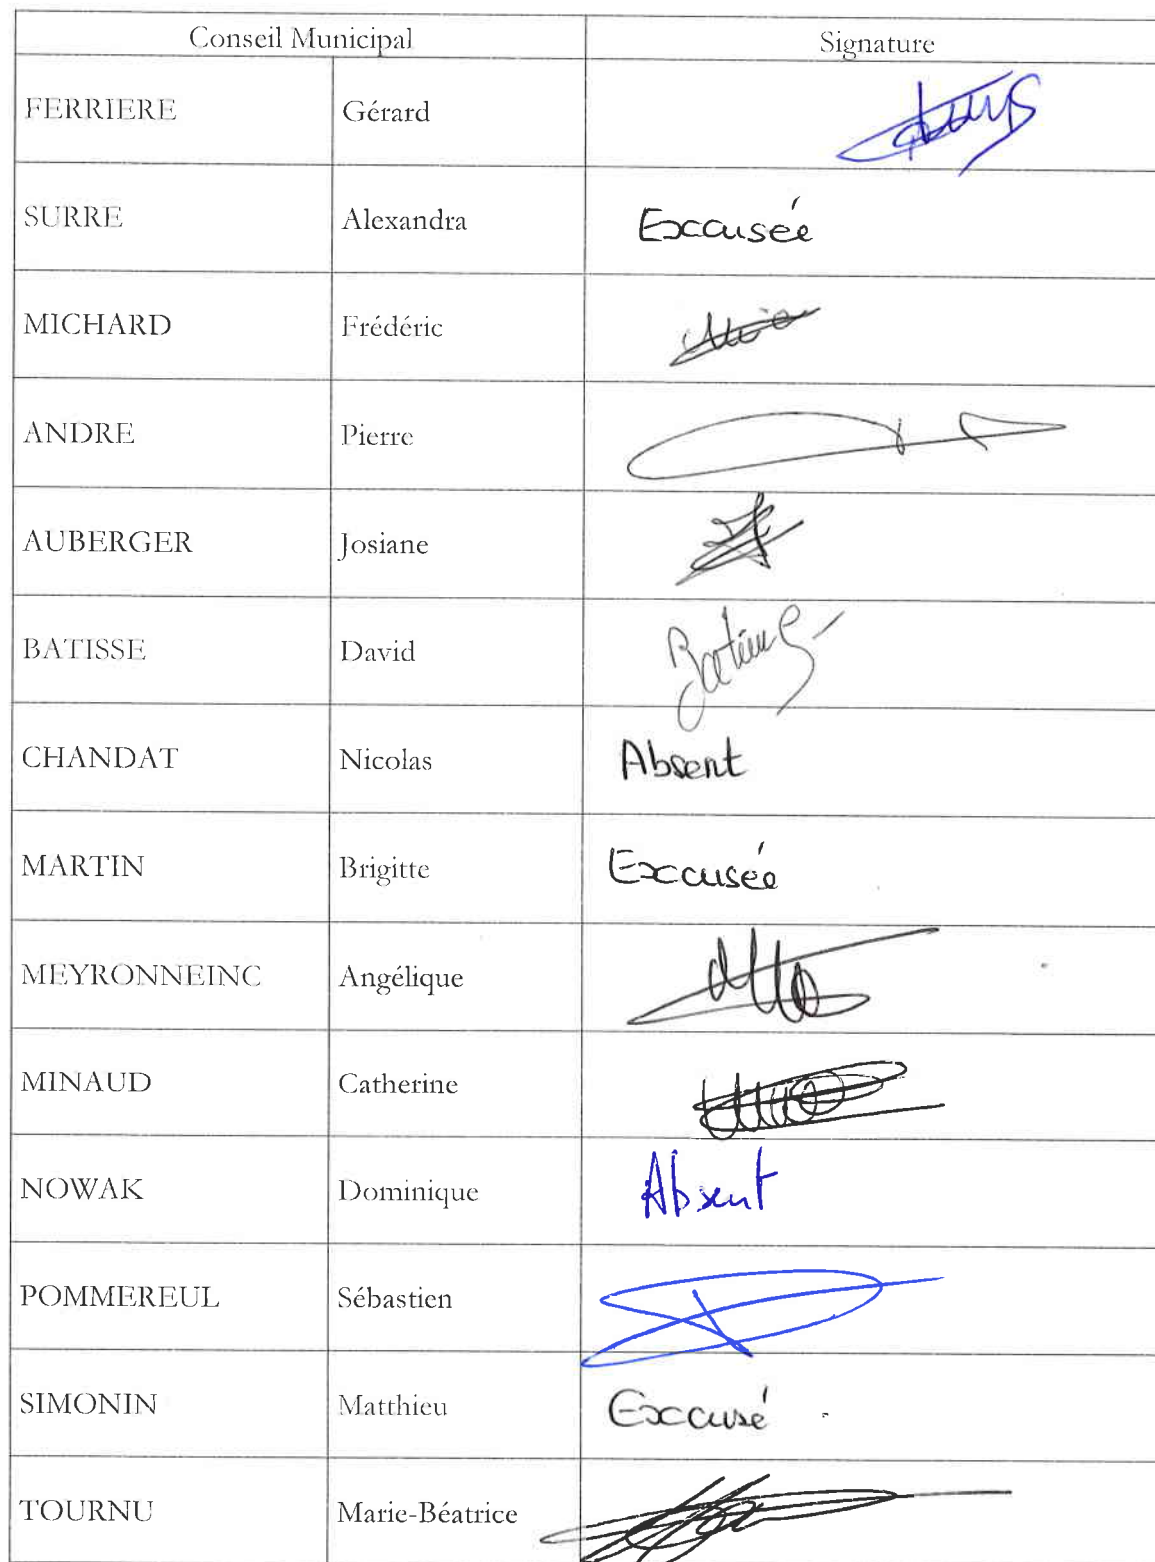 Conseil Municipal Signature
FERRIERE Gérard
SURRE Alexandra Excusée
MICHARD Frédéric
ANDRE Pierre
AUBERGER Josiane
BATISSE David
CHANDAT Nicolas Absent
MARTIN Brigitte Excusée
MEYRONNEINC Angélique
MINAUD Catherine
NOWAK Dominique Absent
POMMEREUL Sébastien
SIMONIN Matthieu Excusé
TOURNU Marie-Béatrice